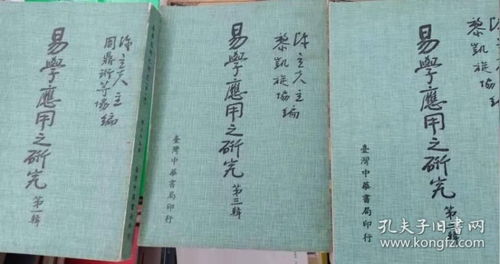 陳立夫主編
周鼎珩等協編
易學應用之研究 第一輯
陳立夫主編
黎凱旋協編
易學應用之研究 第三輯
臺灣中華書局印行
陳立夫主編
黎凱旋協編
易學應用之研究 第二輯
臺灣中華書局印行
孔夫子旧书网
www.kongfz.com